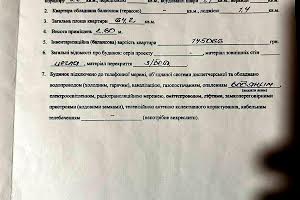 2. Квартира обладнана балконом (терасою) – кв.м, лоджією 1,4 кв.м.
3. Загальна площа квартири 64,2 кв.м.
4. Висота приміщень 2.60 м.
5. Інвентаризаційна (балансова) вартість квартири крб.
6. Загальні відомості про будинок: серія проекту , матеріал зовнішніх стін
цегла , матеріал перекриття з/бет
7. Будинок підключено до телефонної мережі, обладнано
водопроводом (холодним, гарячим), каналізацією, газопостачанням, опаленням
електроосвітленням, радіотрансляційною мережею, сміттєпроводом, ліфтами,
пристроями (кодовими замками), телевізійною антеною колективного користування, кабельним
телебаченням – (непотрібне викреслити).